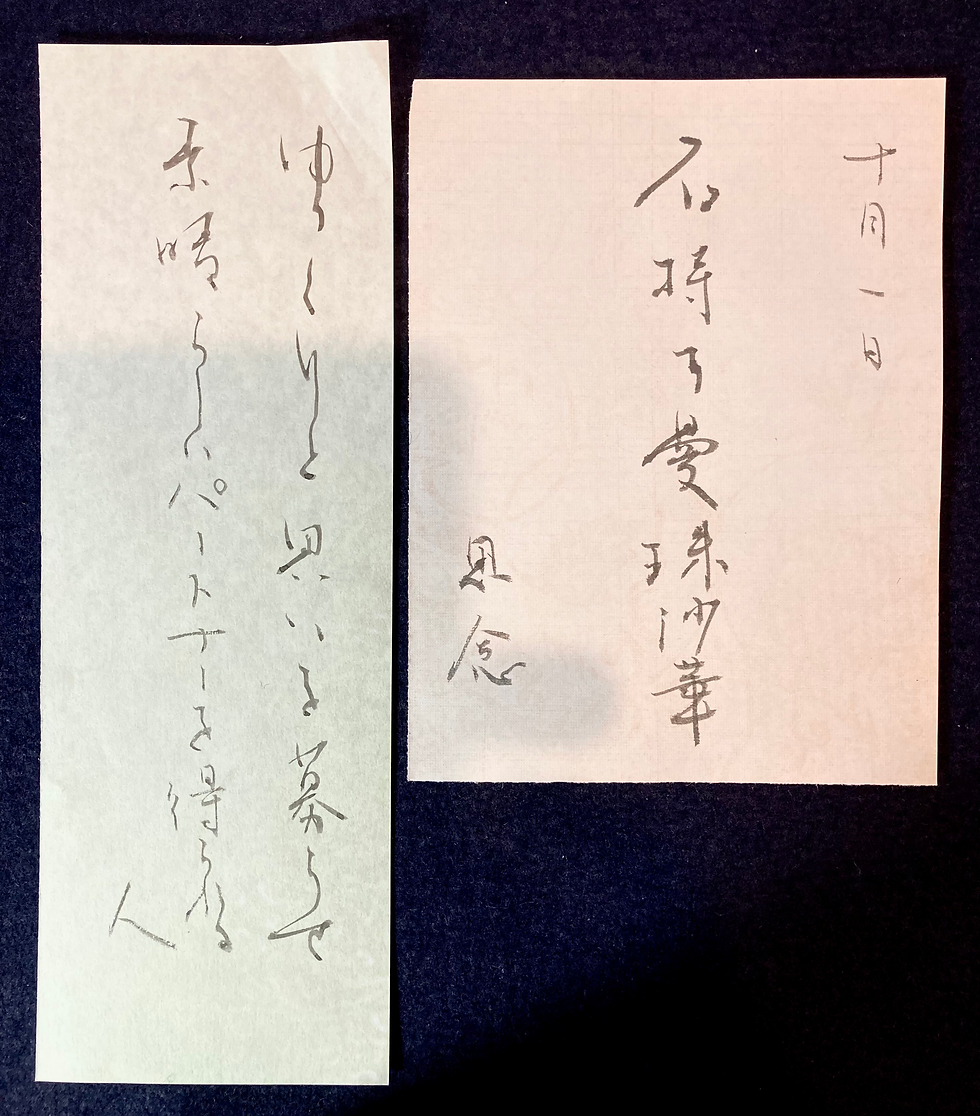 十月一日
石持ち曼珠沙華
思念
ゆっくりと思いを募らせ
素晴らしいパートナーを得られる
人